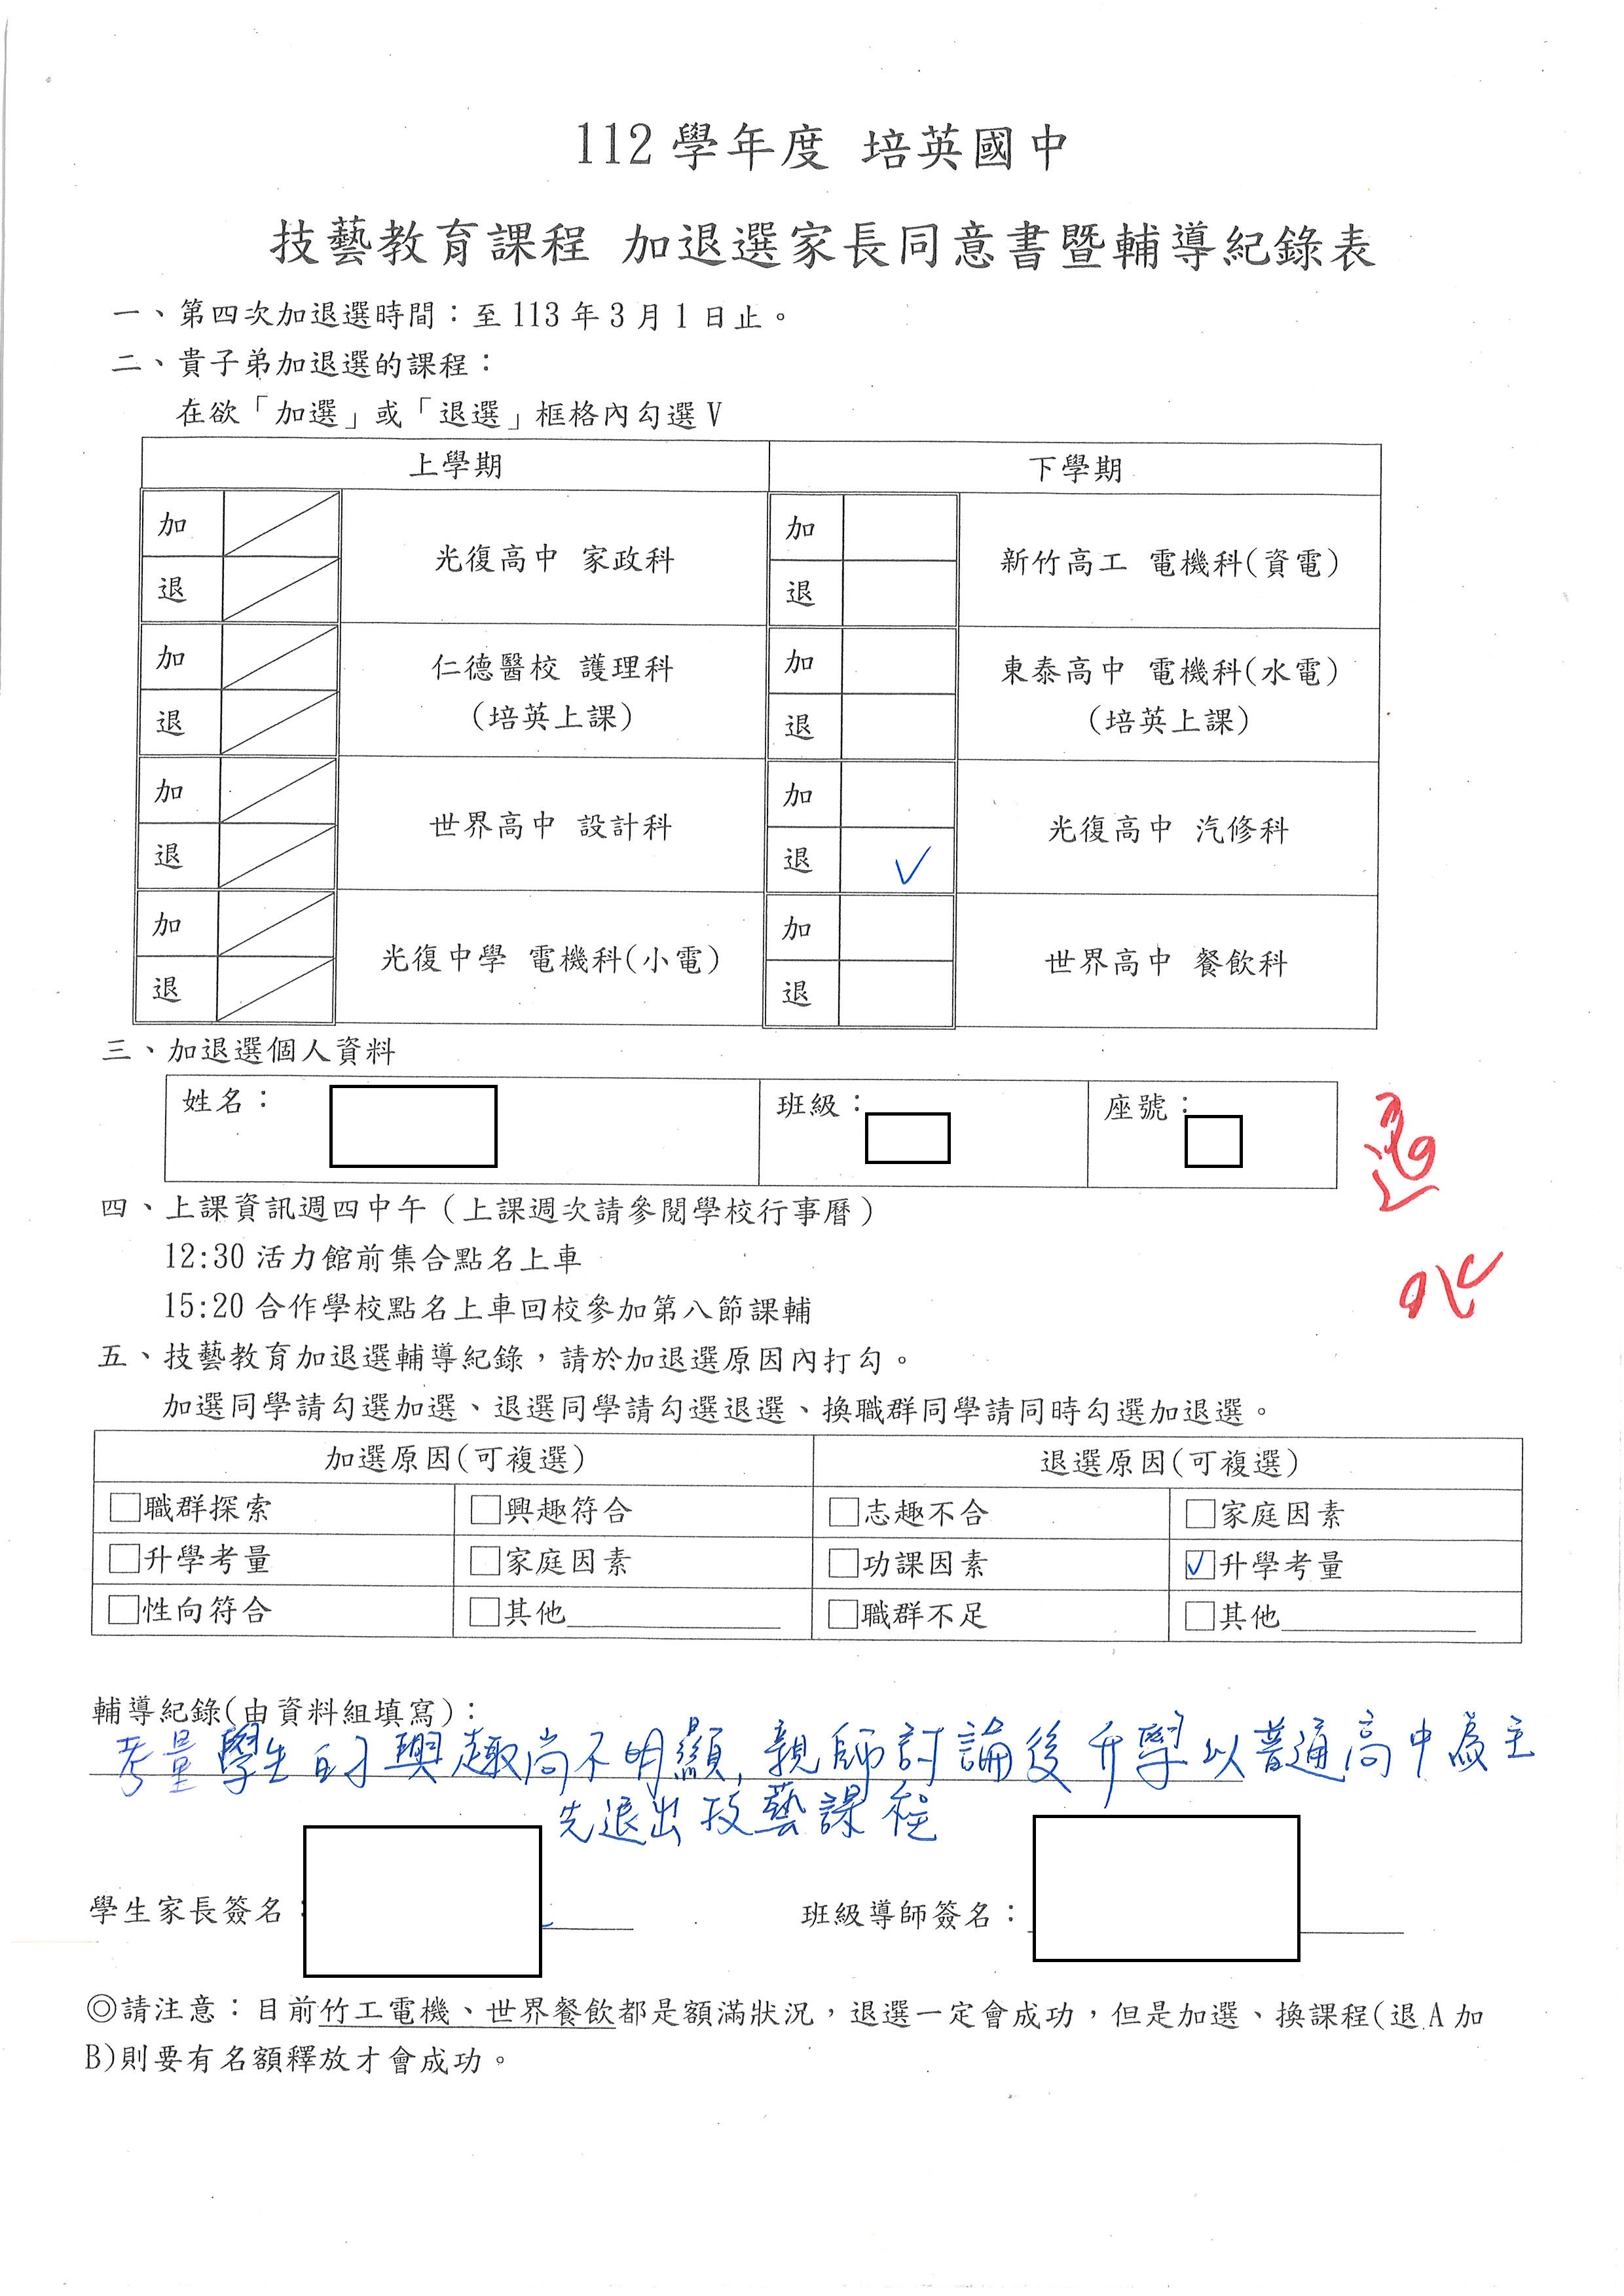 112 學年度 培英國中
技藝教育課程 加退選家長同意書暨輔導紀錄表
一、第四次加退選時間：至 113 年 3 月 1 日止。
二、貴子弟加退選的課程：
在欲「加選」或「退選」框格內勾選 V
上學期 下學期
加 光復高中 家政科 加 新竹高工 電機科(資電)
退 退
加 仁德醫校 護理科 加 東泰高中 電機科(水電)
退 (培英上課) 退 (培英上課)
加 世界高中 設計科 加 光復高中 汽修科
退 退 ✓
加 光復中學 電機科(小電) 加 世界高中 餐飲科
退 退
三、加退選個人資料
姓名： 班級： 座號：
退
四、上課資訊週四中午（上課週次請參閱學校行事曆）
12:30 活力館前集合點名上車
15:20 合作學校點名上車回校參加第八節課輔
五、技藝教育加退選輔導紀錄，請於加退選原因內打勾。
加選同學請勾選加選、退選同學請勾選退選、換職群同學請同時勾選加退選。
加選原因(可複選) 退選原因(可複選)
□職群探索 □興趣符合 □志趣不合 □家庭因素
□升學考量 □家庭因素 □功課因素 ☑升學考量
□性向符合 □其他 □職群不足 □其他
輔導紀錄(由資料組填寫)：
考量學生的興趣尚不明顯,親師討論後升學以普通高中為主
先退出技藝課程
學生家長簽名： 班級導師簽名：
◎請注意：目前竹工電機、世界餐飲都是額滿狀況，退選一定會成功，但是加選、換課程(退 A 加
B)則要有名額釋放才會成功。